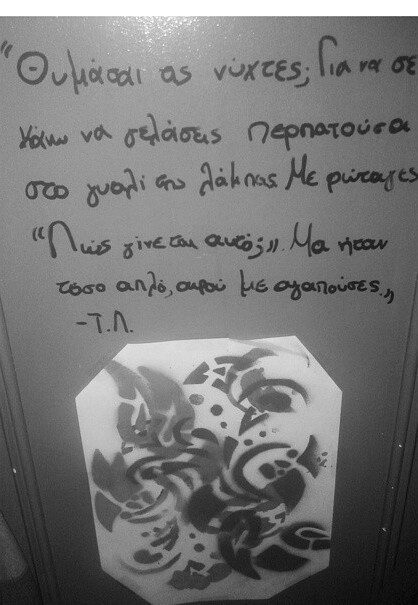 “Θυμάσαι τις νύχτες; Για να σε
κάνω να γελάσεις περπατούσα
στο γυαλί της λάμπας. Με ρώταγες
“Πώς γίνεται αυτό;„. Μα ήταν
τόσο απλό, αφού με αγαπούσες.„
-Τ.Λ.